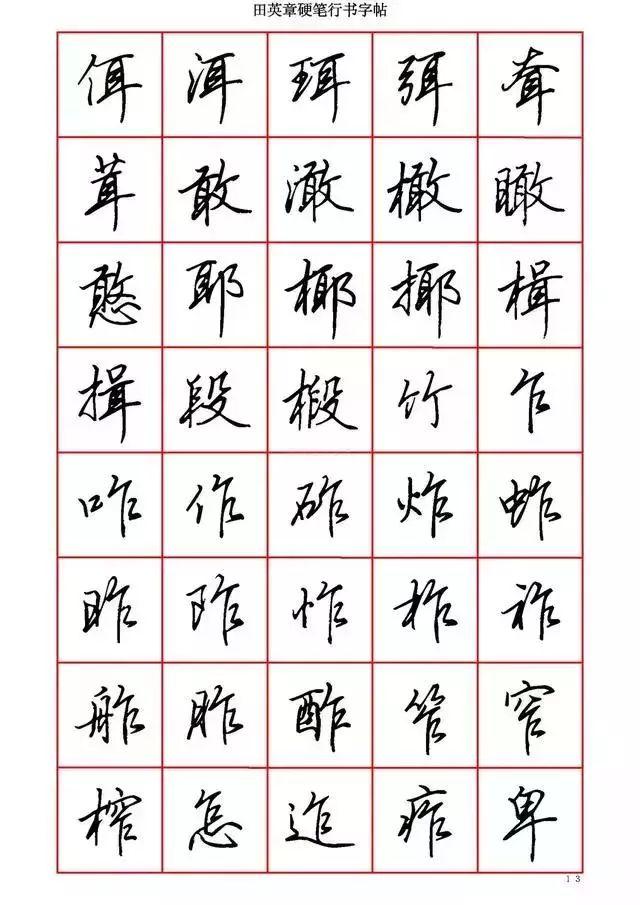 田英章硬笔行书字帖
佴洱珥弭耷
茸敢澉橄瞰
憨耶椰揶楫
揖段椴竹乍
咋作砟炸蚱
昨阼怍柞祚
舴胙酢笮窄
榨怎迮痄卑
13